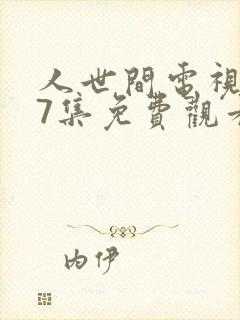 人世間電視
7集免費觀看
內伊